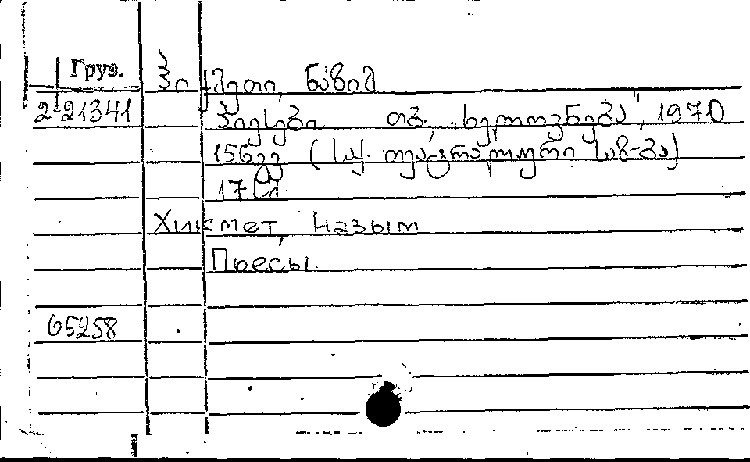 Груз.
ჰიქმეთი, ნაზიმ
2-21341 პიესები. თბ. "ხელოვნება", 1970
156გვ (საქ. თეატრალური საზ-ბა)
17 სმ
Хикмет, Назым
Пьесы.
65258